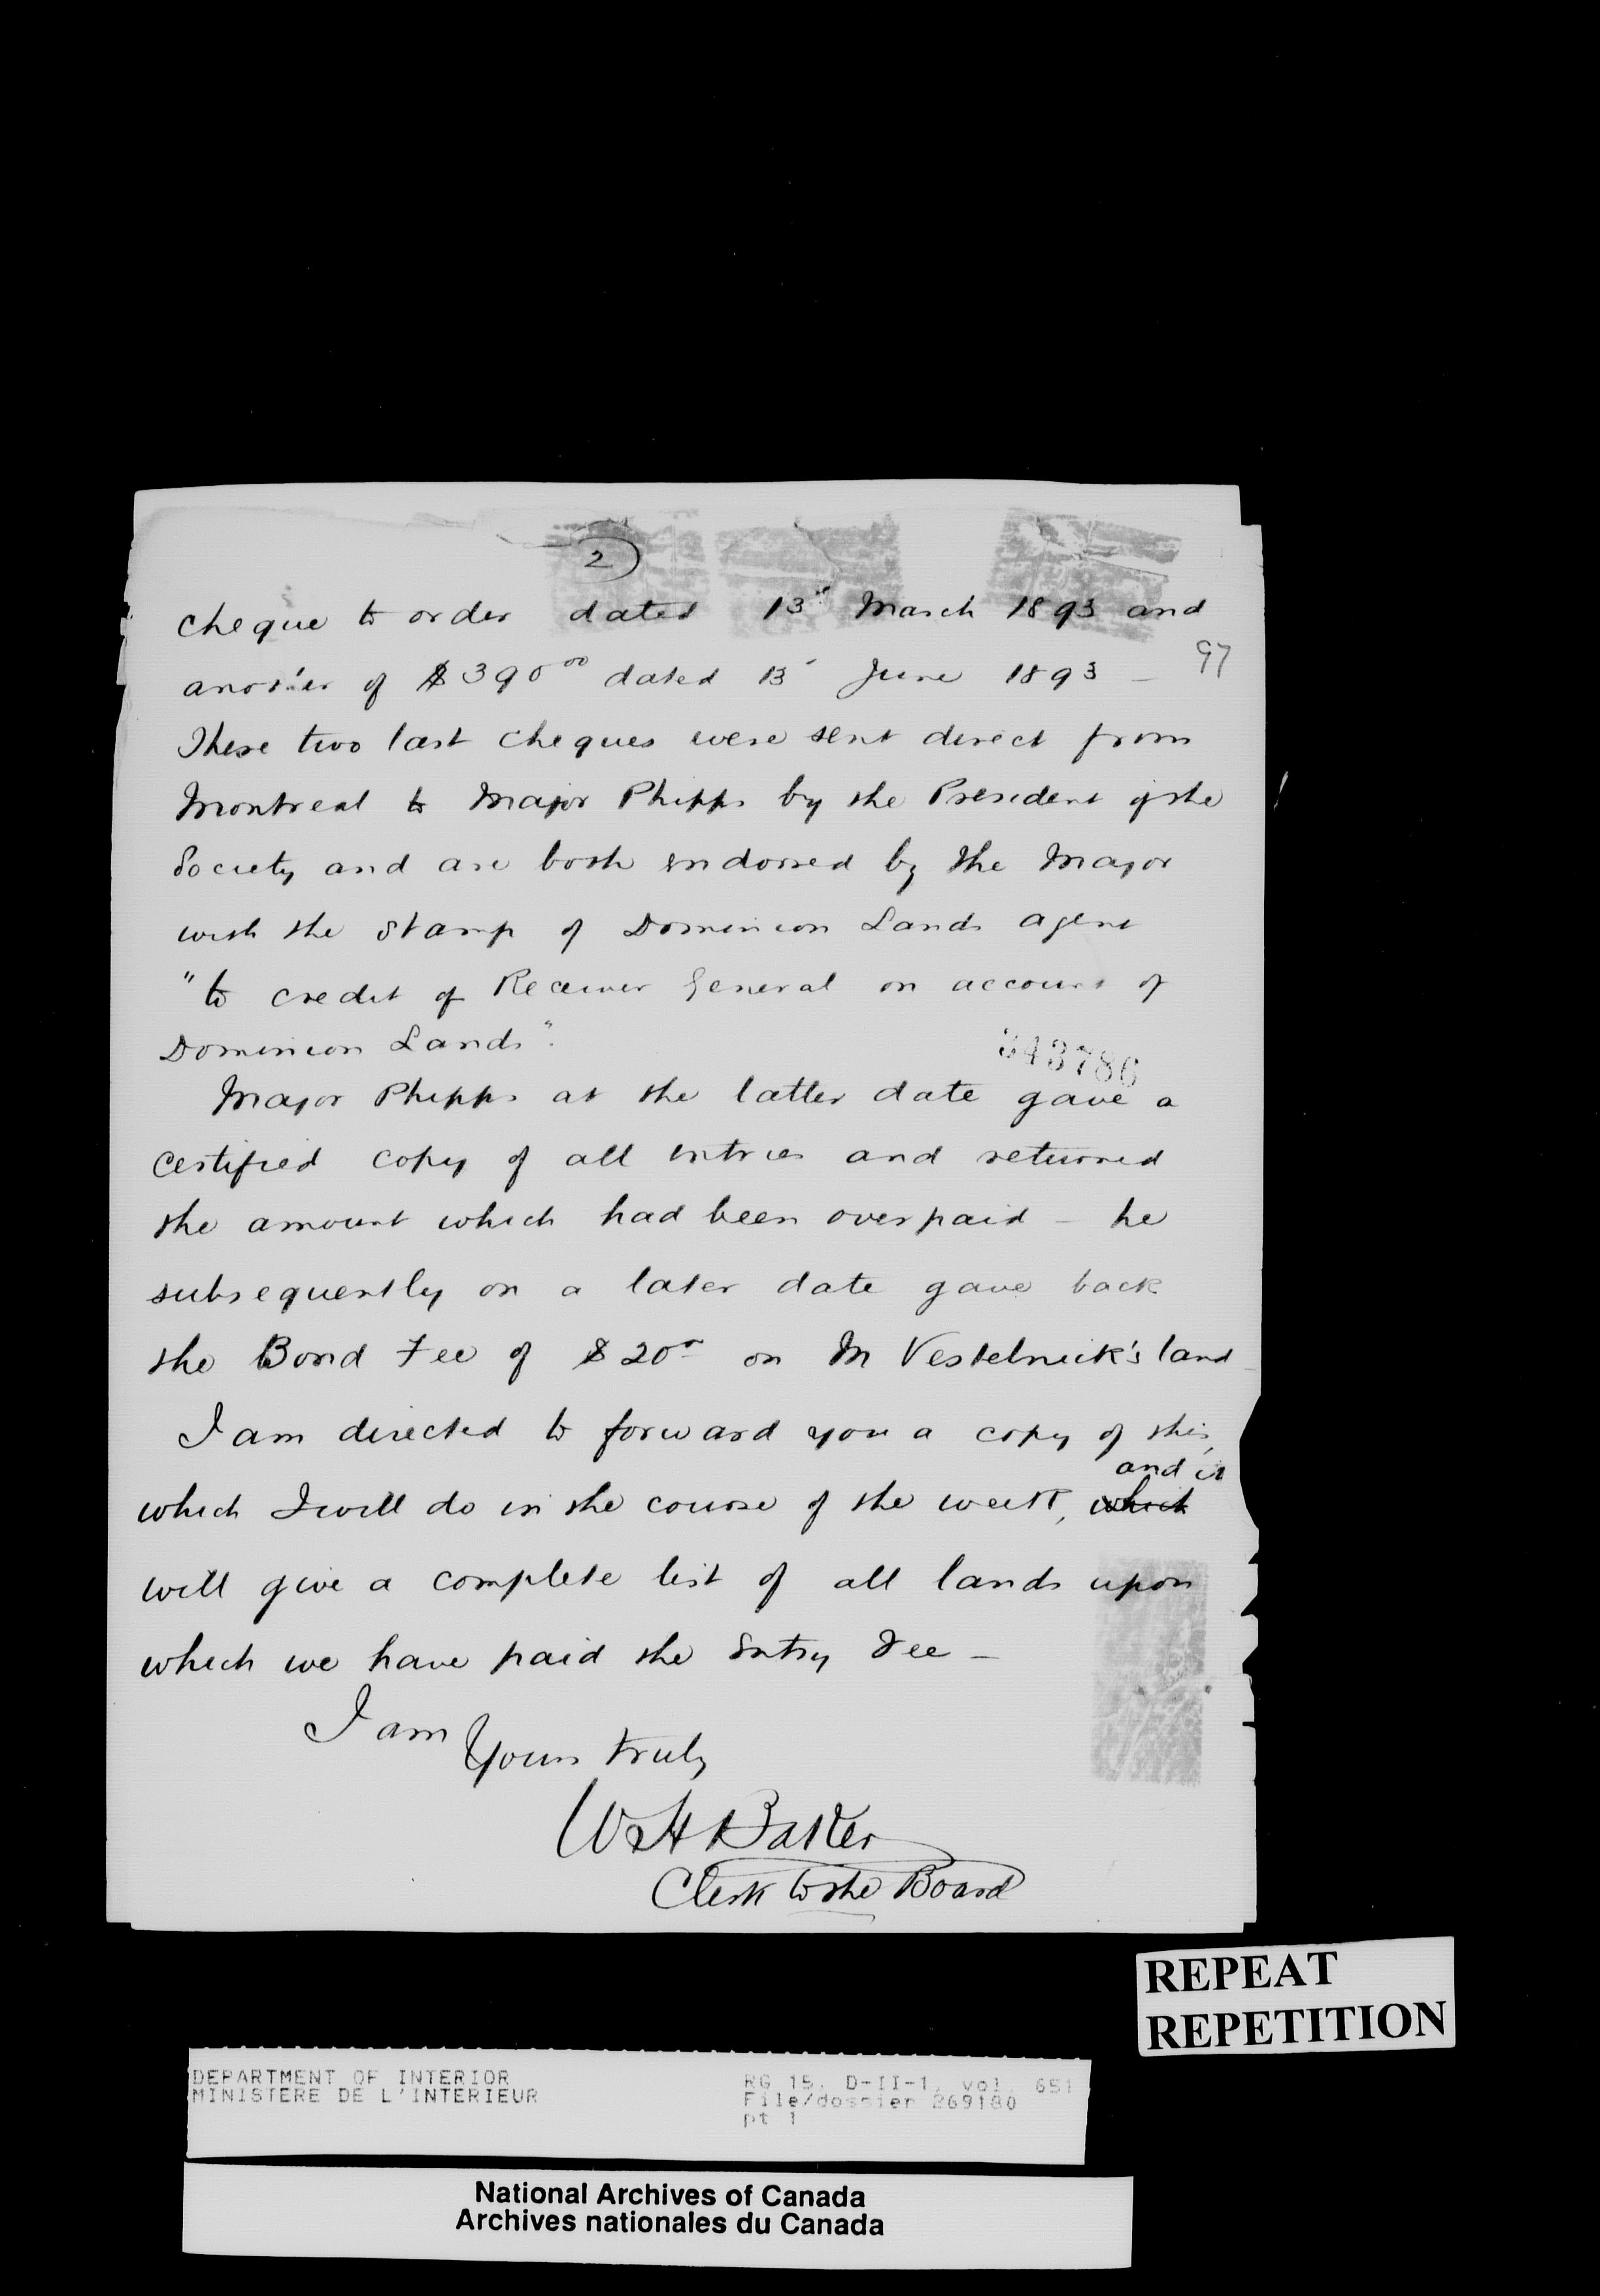 2
cheque to order dated 13th March 1893 and
another of $390 00 dated 13 June 1893 –
97
These two last cheques were sent direct from
Montreal to Major Phipps by the President of the
Society and are both endorsed by the Major
with the stamp of Dominion Lands agent
"to credit of Receiver General on account of
Dominion Lands".
343786
Major Phipps at the latter date gave a
certified copy of all entries and returned
the amount which had been overpaid – he
subsequently on a later date gave back
the Bond Fee of $20 on M Vestelneick's land
I am directed to forward you a copy of this,
and it
which I will do in the course of the week, which
will give a complete list of all lands upon
which we have paid the Entry Fee –
I am
Yours truly
W H Baker
Clerk to the Board
REPEAT
REPETITION
DEPARTMENT OF INTERIOR
MINISTERE DE L'INTERIEUR
RG 15, D-II-1, vol. 651
File/dossier 269180
pt 1
National Archives of Canada
Archives nationales du Canada